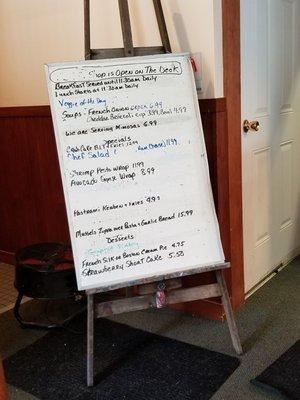 is Open on The Deck
Breakfast Served until 11:30am
Lunch starts at 11:30am
Veggie of the Day
Soups - French Onion crock 6.99
Cheddar Broccoli cup 3.99, Bowl 4.99
We are Serving Mimosas 6.99
Specials
Crab Cake BLT + Fries
Chef Salad 11.99
Shrimp Pesto Wrap 11.99
Avocado Wrap 8.99
Pastrami Reuben + Fries
Mussels over Pasta + Garlic Bread 15.99
Desserts
French Silk or Boston Cream Pie 4.75
Strawberry Short Cake 5.50